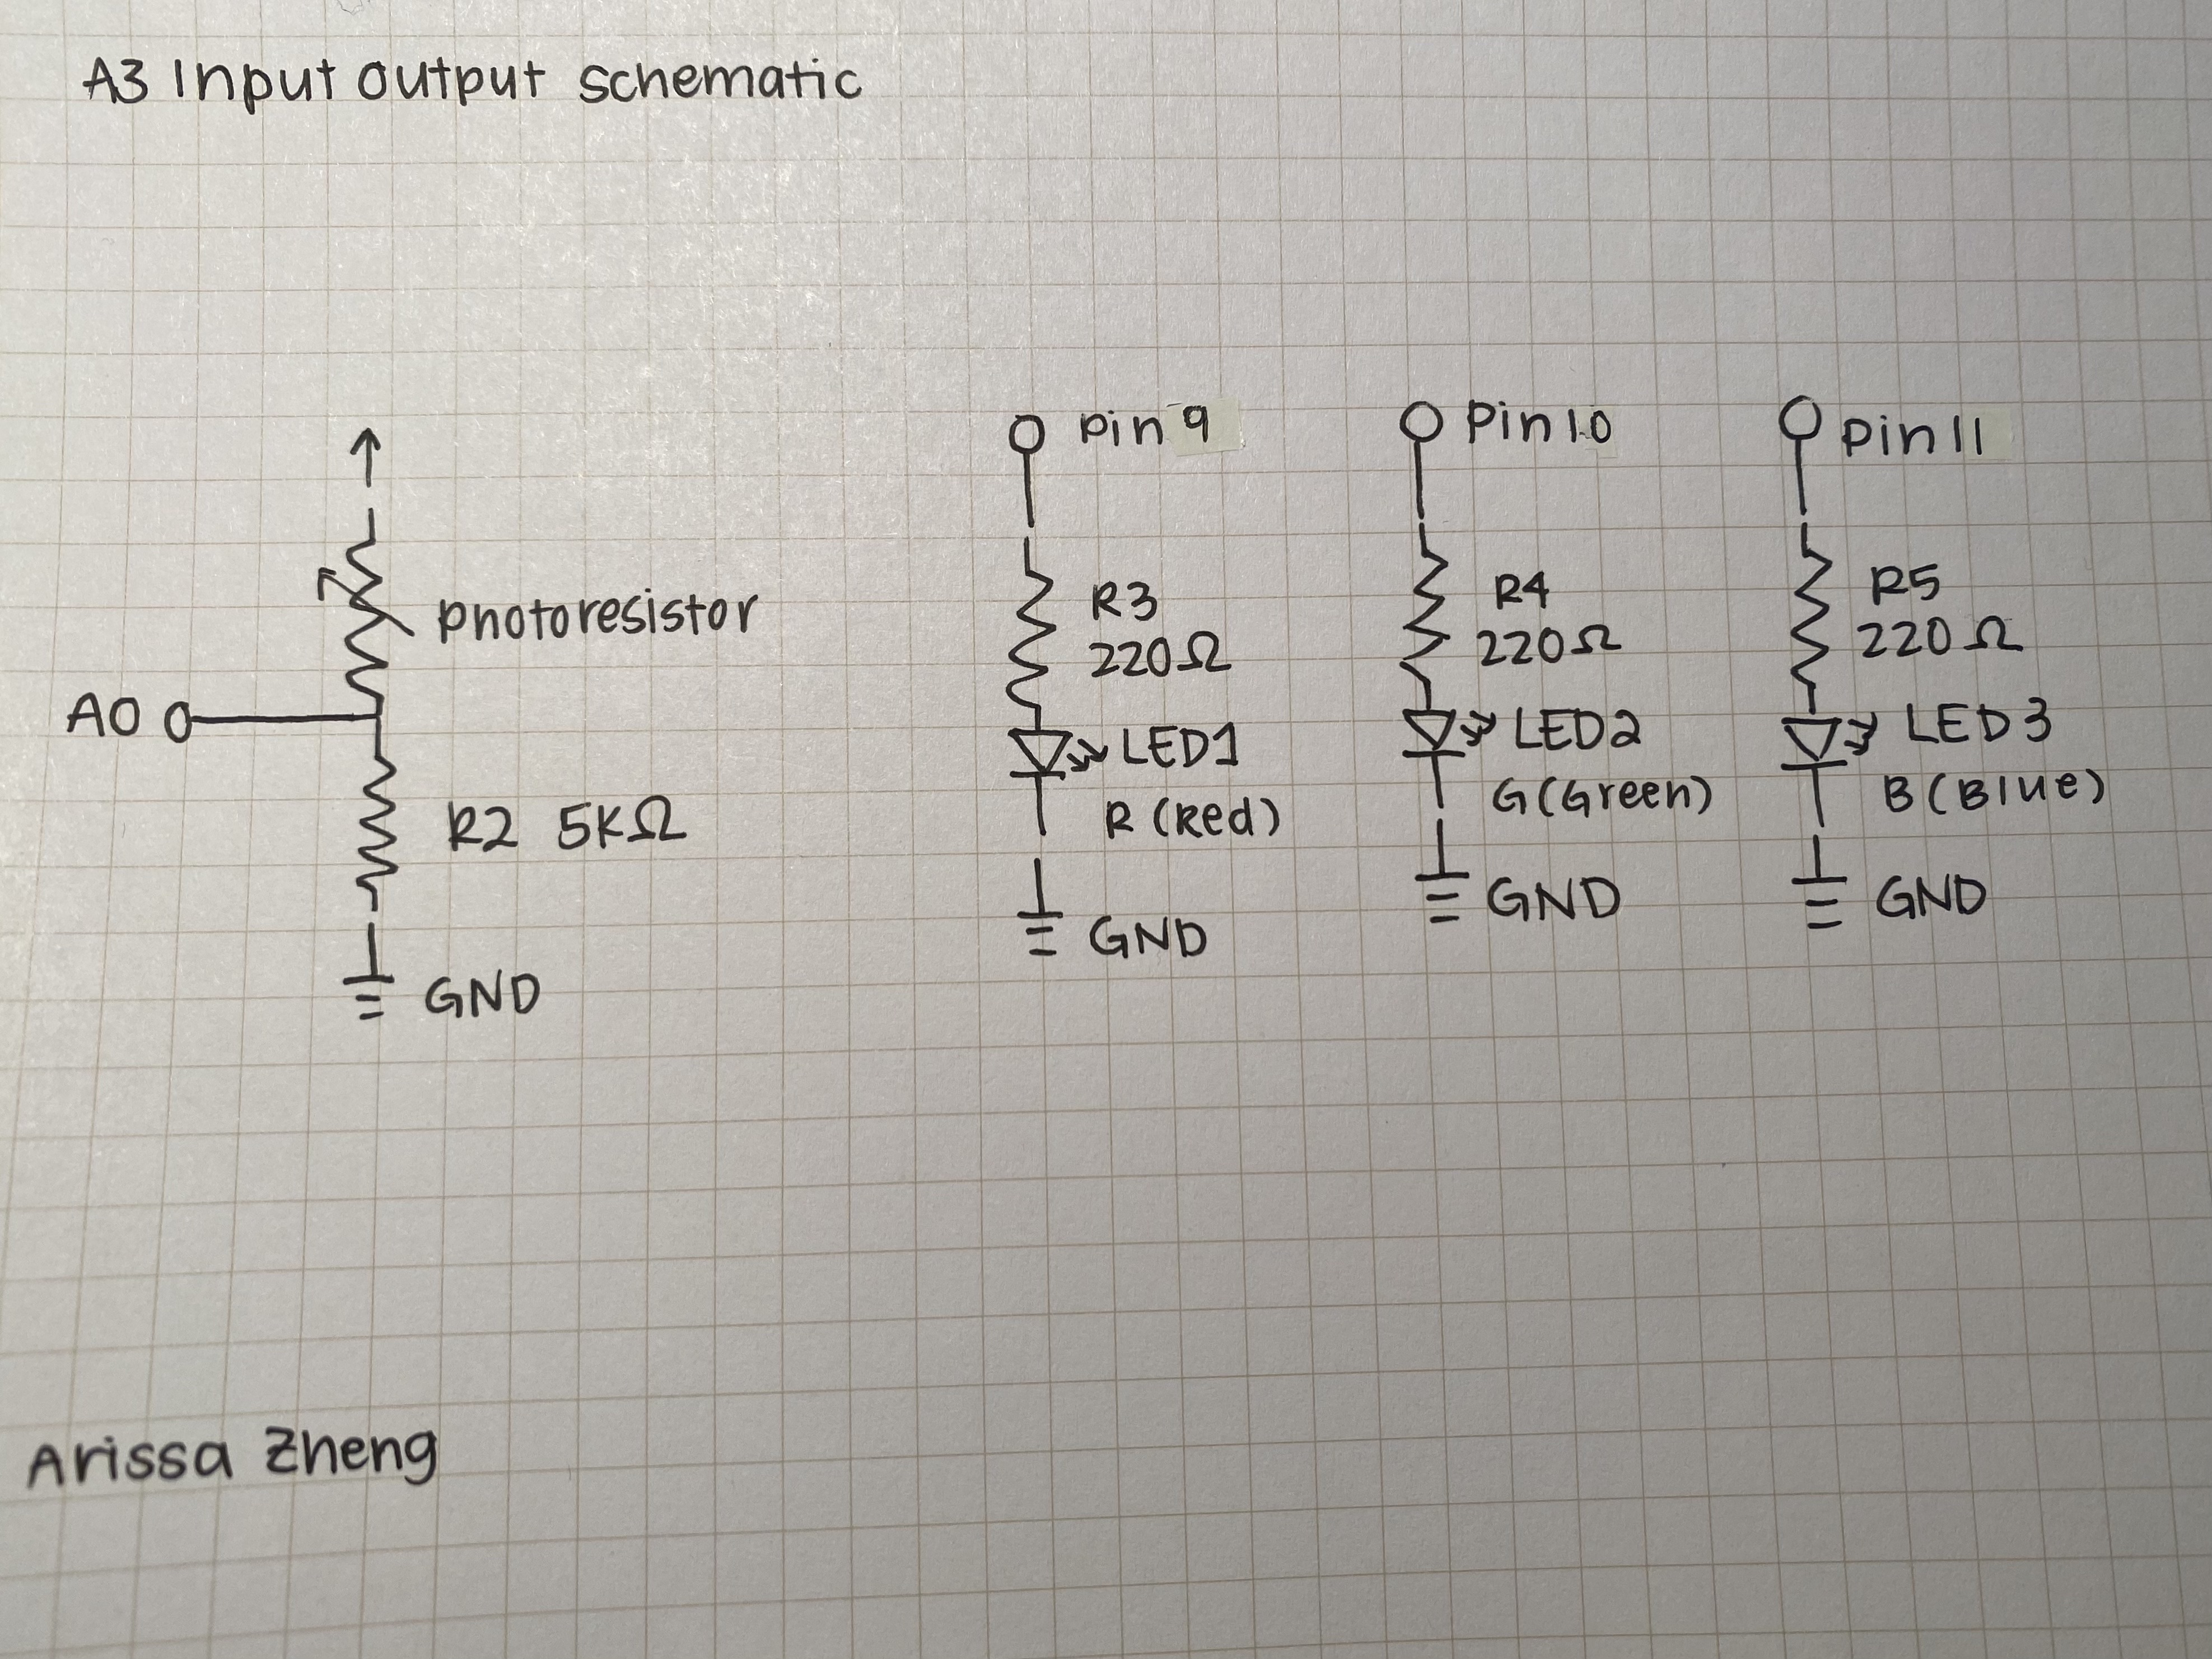 A3 Input output schematic
Photoresistor
A0
R2 5KΩ
GND
Pin 9
R3
220Ω
LED1
R (Red)
GND
Pin 10
R4
220Ω
LED2
G (Green)
GND
Pin 11
R5
220Ω
LED3
B (Blue)
GND
Arissa Zheng